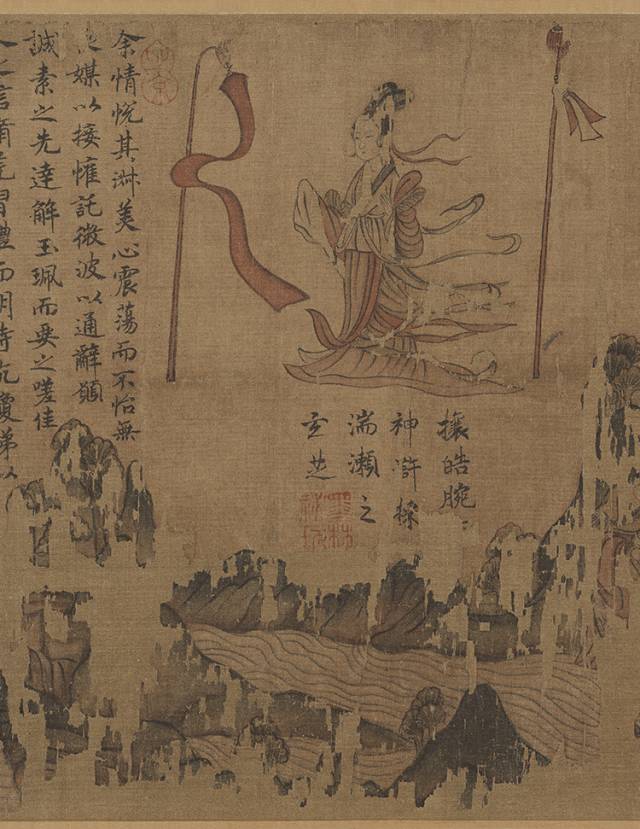 攘皓腕
神滸採
湍瀨之
玄芝
余情悅其淑美心震蕩而不怡無
媒以接懽託微波以通辭願
誠素之先達解玉珮而要之嗟佳
之習禮而明詩抗瓊珶以